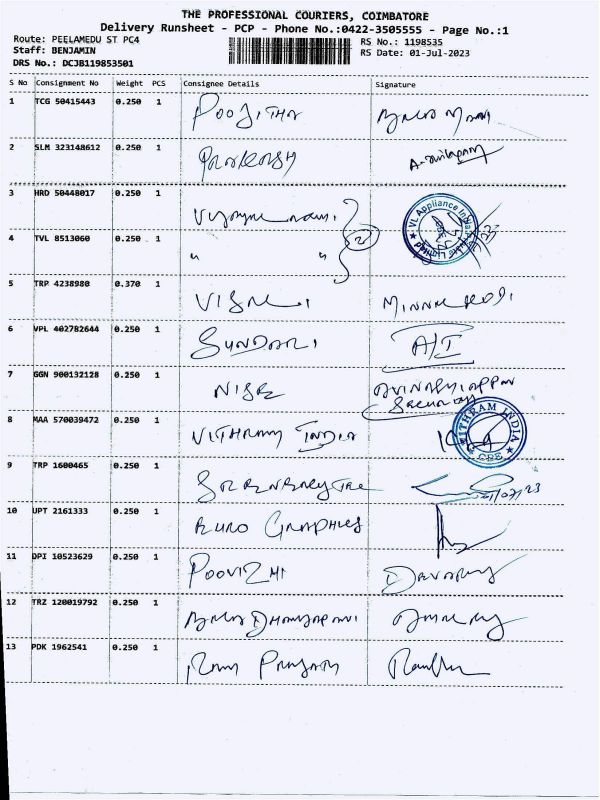 THE PROFESSIONAL COURIERS, COIMBATORE
Delivery Runsheet - PCP - Phone No.:0422-3505555 - Page No.:1
Route: PEELAMEDU ST PC4 RS No.: 1198535
Staff: BENJAMIN RS Date: 01-Jul-2023
DRS No.: DCJB119853501
S No Consignment No Weight PCS Consignee Details Signature
1 TCG 50415443 0.250 1 POOJITHA
2 SLM 323148612 0.250 1 PRAKASH
3 HRD 50448017 0.250 1 VL Appliance India Private Limited
4 TVL 8513060 0.250 1 " " 2
5 TRP 4238980 0.370 1
6 VPL 402782644 0.250 1 SUNDARI
7 GGN 900132128 0.250 1 AVINASHIAPPAN
Security
8 MAA 570039472 0.250 1 VITHRAM INDIA VITHRAM INDIA CBE
9 TRP 1600465 0.250 1
10 UPT 2161333 0.250 1 EURO GRAPHICS
11 DPI 10523629 0.250 1 POOVIZHI
12 TRZ 120019792 0.250 1
13 PDK 1962541 0.250 1 Ram